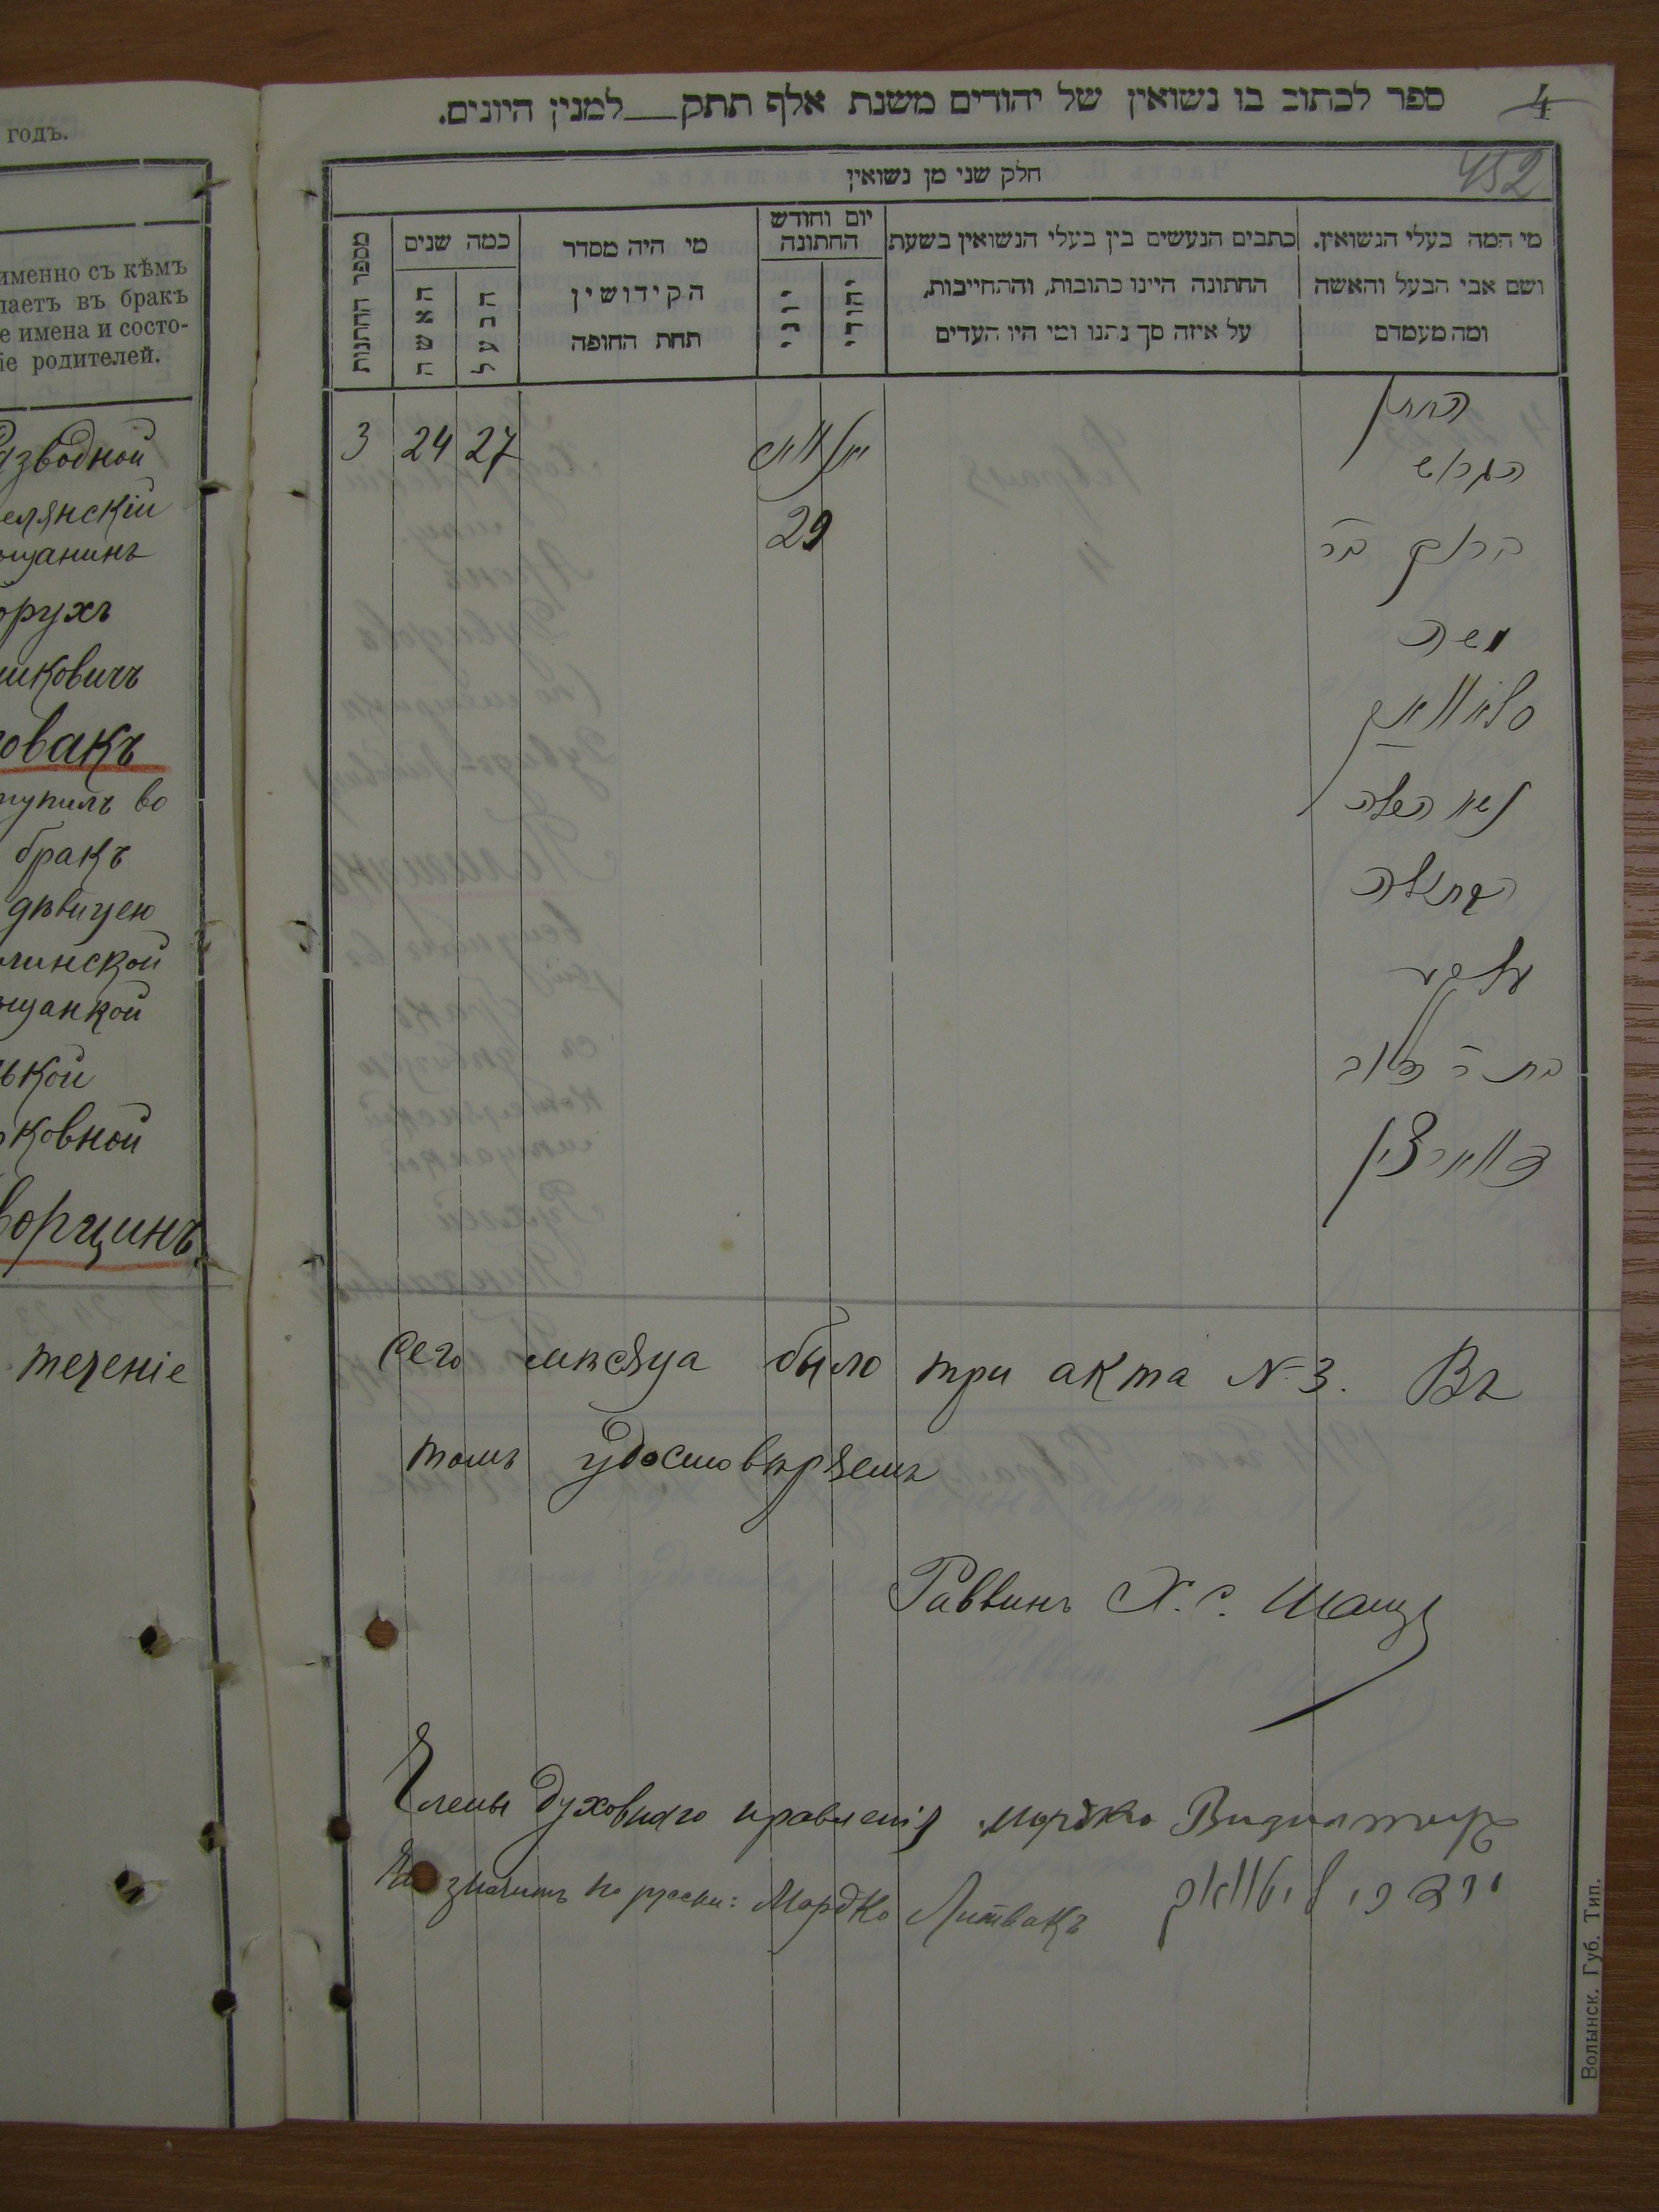 годъ.
именно съ кѣмъ
паетъ въ бракъ
е имена и состо-
іе родителей.
зводной
елянскій
щанинъ
орухъ
шковичъ
овакъ
тупилъ во
бракъ
дѣвицею
линской
щанкой
ькой
ковной
ворцинъ
теченіе
4
ספר לכתוב בו נשואין של יהודים משנת אלף תתק__למנין היונים.
452
חלק שני מן נשואין
מי המה בעלי הנשואין.
ושם אבי הבעל והאשה
ומה מעמדם
כתבים הנעשים בין בעלי הנשואין בשעת
החתונה היינו כתובות, והתחייבות,
על איזה סך נתנו ומי היו העדים
יום וחודש
החתונה
יהודי
יוני
מי היה מסדר
הקידושין
תחת החופה
כמה שנים
הבעל
האשה
מספר החתונות
3 24 27
29
החתן
הגרוש
ברוך בר
משה
סלאוואק
נשא
הבתולה
בת ר
сего мѣсяца было три акта № 3. Въ
томъ удостовѣряемъ
Раввинъ Х. С.
Члены духовнаго правленія Мордко
значитъ по русски: Мордко Литвакъ
מרדכי ליטוואק
Волынск. Губ. Тип.